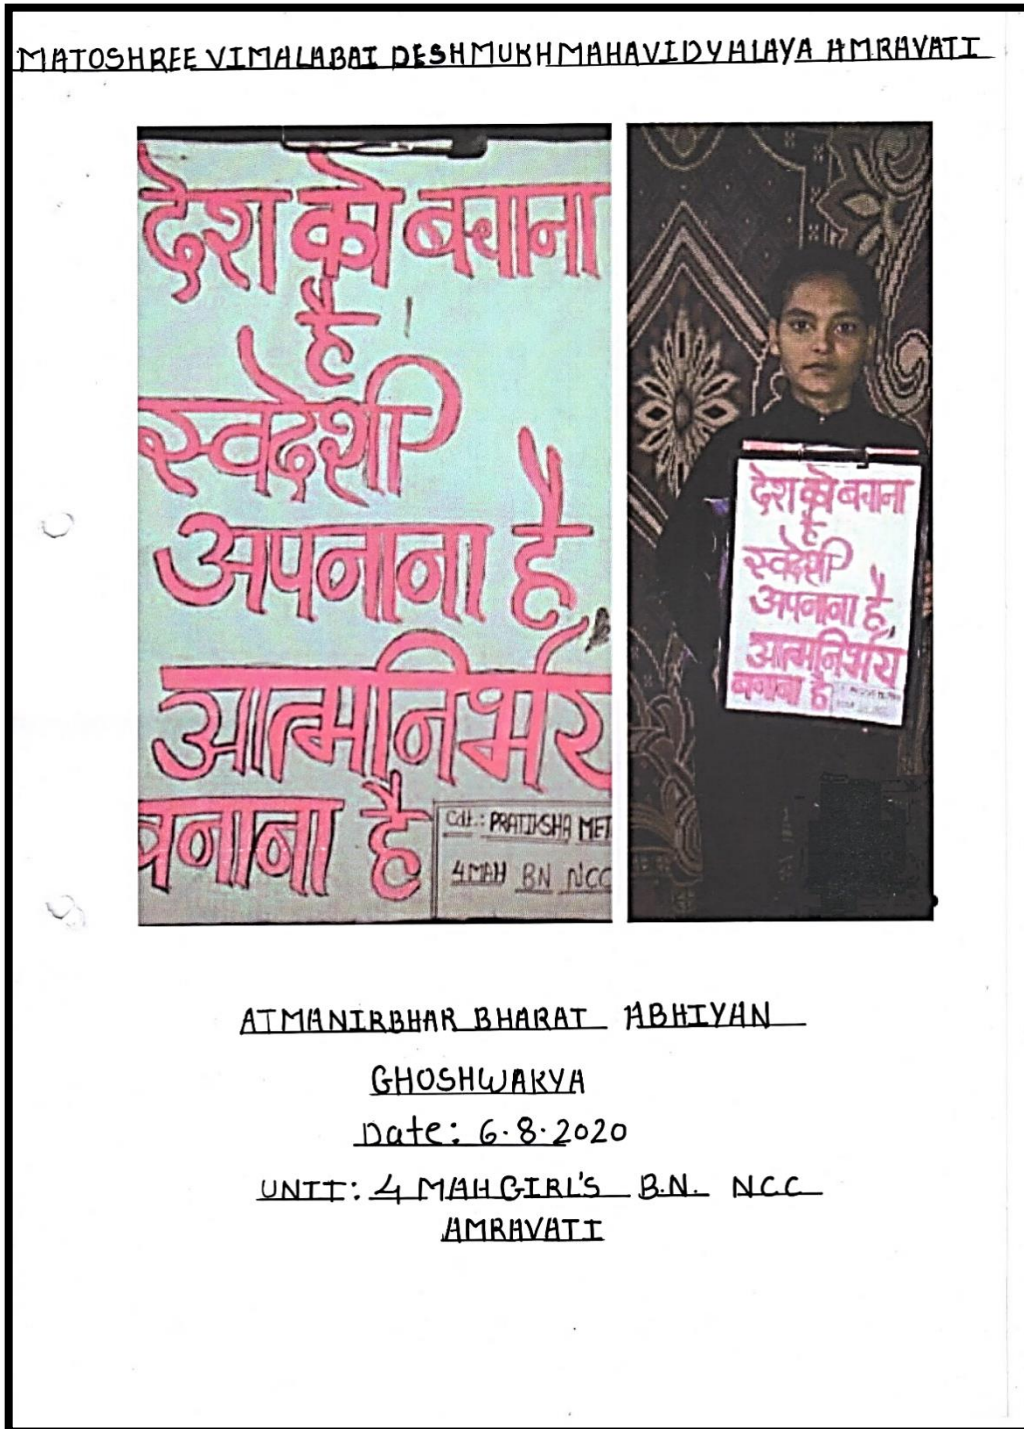 MATOSHREE VIMALABAI DESHMUKH MAHAVIDYALAYA AMRAVATI
देश को बचाना
है
स्वदेशी
अपनाना है,
आत्मनिर्भर
बनाना है
Cdt.: PRATIKSHA MET
4 MAH BN NCC
देश को बचाना
है
स्वदेशी
अपनाना है,
आत्मनिर्भर
बनाना है
ATMANIRBHAR BHARAT ABHIYAN
GHOSHWAKYA
Date: 6.8.2020
UNIT: 4 MAH GIRL'S B.N. NCC
AMRAVATI